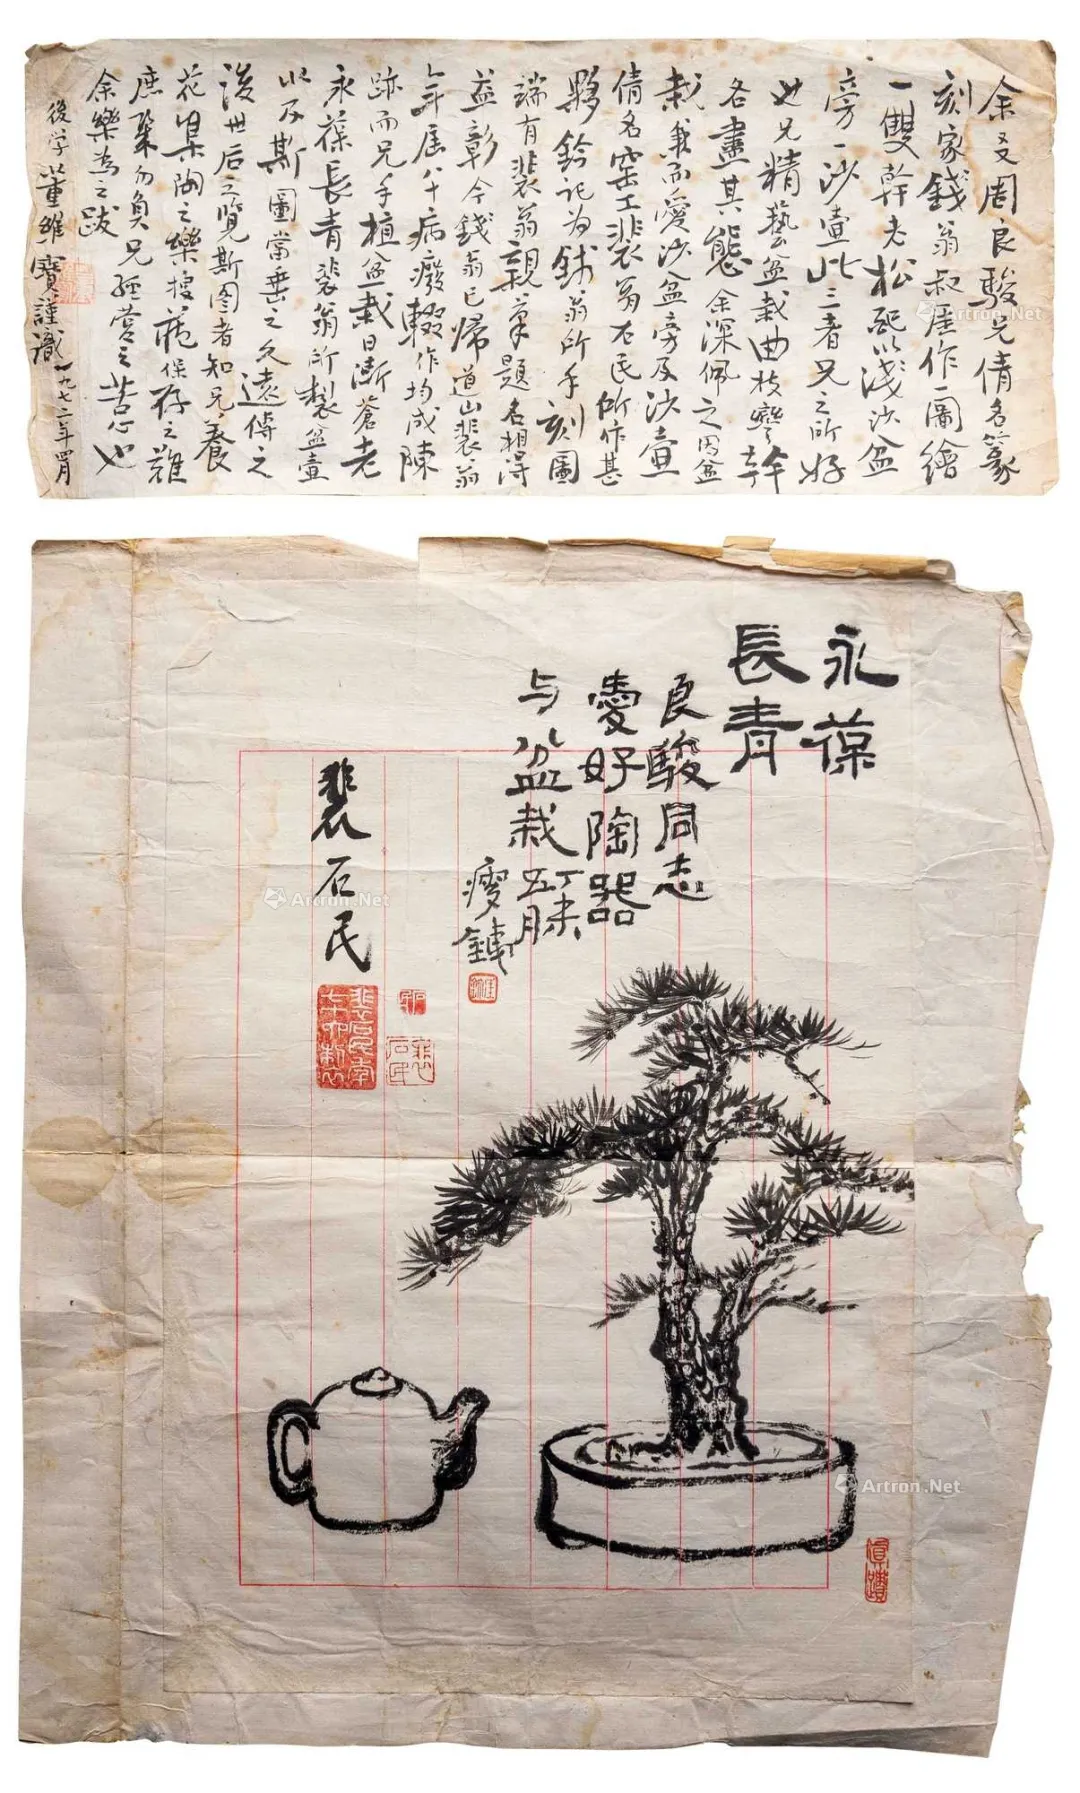 余友周良駿兄倩名篆
刻家錢翁叔厓作一圖繪
一雙幹老松配以淺沙盆
旁一沙壺此三者兄之所好
也兄精藝盆栽曲枝彎幹
各盡其態余深佩之因盆
栽兼而愛沙盆旁及沙壺
倩名窑工裴翁石民所作甚
夥鈐記为錢翁所手刻圖
端有裴翁親筆題名相得
益彰今錢翁已歸道山裴翁
年届八十病癈輟作均成陳
跡而兄手植盆栽日漸蒼老
永葆長青裴翁所製盆壺
以及斯圖當垂之久遠傳之
後世后之覽斯图者知兄養
花集陶之樂搜藏保存之難
庶幾勿負兄經营之苦心也
余樂為之跋
後学董維寶謹識一九七二年四月
永葆
長青
良駿同志
愛好陶器
与盆栽丁未五月
瘦鐵
裴石民
裴石民
真蹟
Artron.Net
Artron.Net
Artron.Net
Artron.Net